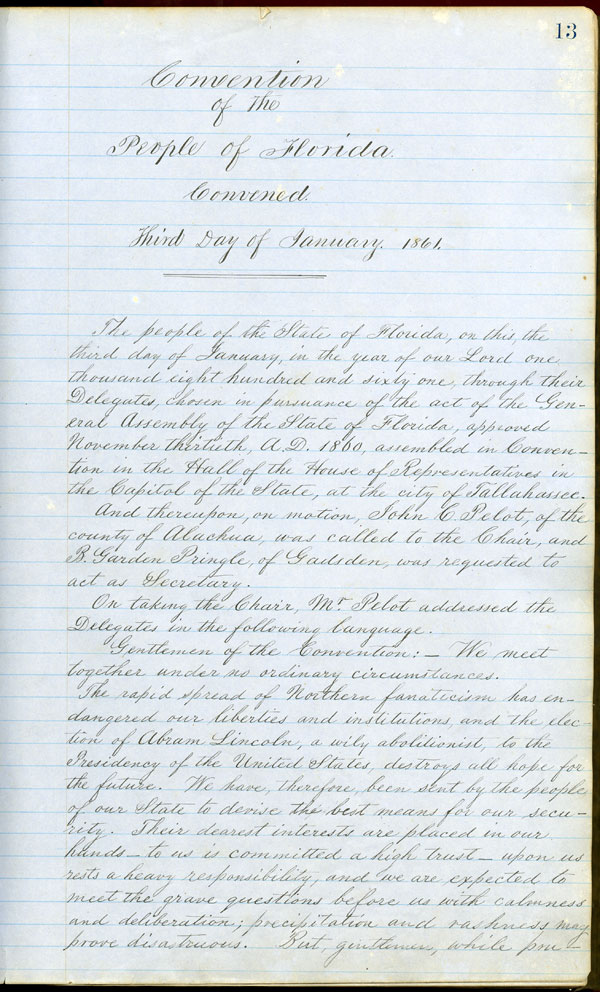 13
Convention
of the
People of Florida.
Convened.
Third Day of January. 1861.
The people of the State of Florida, on this, the
third day of January, in the year of our Lord one
thousand eight hundred and sixty one, through their
Delegates, chosen in pursuance of the act of the Gen-
eral Assembly of the State of Florida, approved
November thirtieth, A.D. 1860, assembled in Conven-
tion in the Hall of the House of Representatives in
the Capitol of the State, at the city of Tallahassee.
And thereupon, on motion, John C. Pelot, of the
county of Alachua, was called to the Chair, and
B. Garden Pringle, of Gadsden, was requested to
act as Secretary.
On taking the Chair, Mr Pelot addressed the
Delegates in the following language.
Gentlemen of the Convention:— We meet
together under no ordinary circumstances.
The rapid spread of Northern fanaticism has en-
dangered our liberties and institutions, and the elec-
tion of Abram Lincoln, a wily abolitionist, to the
Presidency of the United States, destroys all hope for
the future. We have, therefore, been sent by the people
of our State to devise the best means for our secu-
rity. Their dearest interests are placed in our
hands— to us is committed a high trust— upon us
rests a heavy responsibility, and we are expected to
meet the grave questions before us with calmness
and deliberation; precipitation and rashness may
prove disastruous. But, gentlemen, while pru-